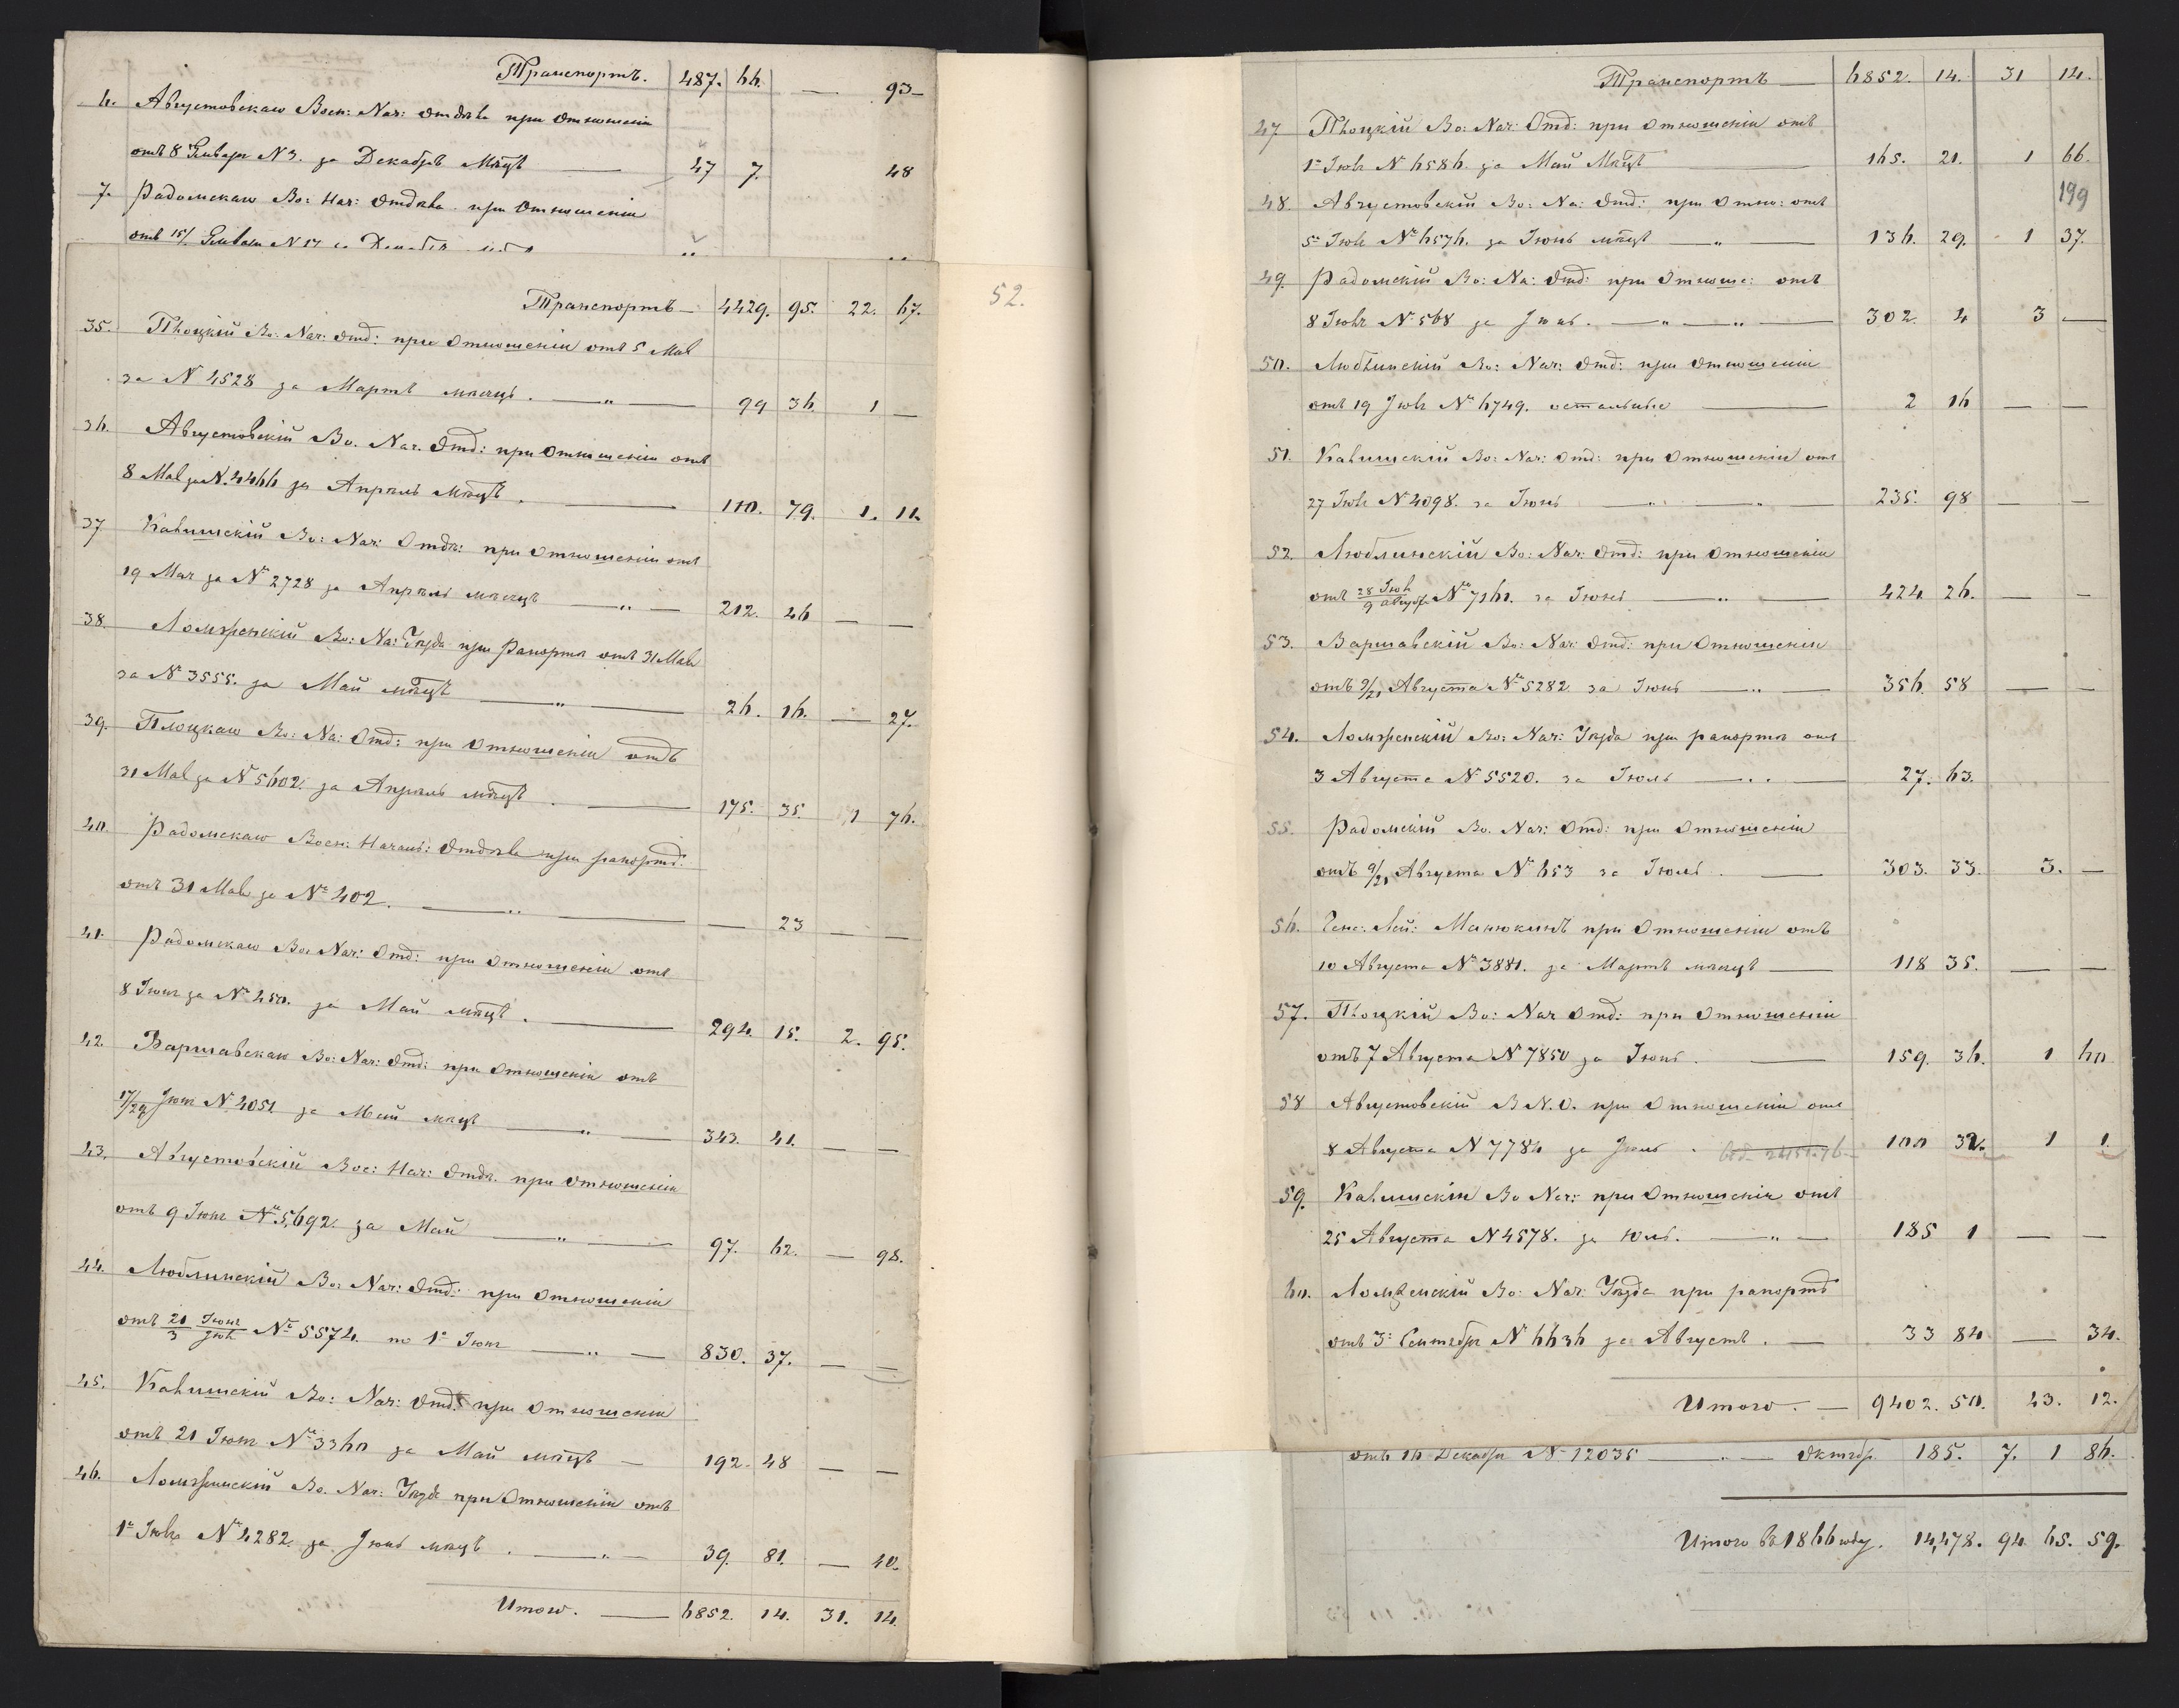 Транспортъ. 487. 66. — 93 –
6. Августовскаго Воен: Нач: Отдѣла при отношеніи
отъ 8 Января N 3. за Декабрь мѣсцъ — 47 7. 48
7. Радомскаго Во: Нач: Отдѣла при отношеніи
отъ 15/ Января N 17 за Декабрь
Транспортъ — 4429. 95. 22. 67.
35. Плоцкій Во: Нач: Отд: при отношеніи отъ 5 Мая
за N 4528 за Мартъ мѣсяцъ. — " — 99 36 1 —
36. Августовскій Во. Нач. Отд: при отношеніи отъ
8 Мая за N. 4466 за Апрѣль мѣсцъ. — 110. 79. 1. 11.
37 Калишскій Во: Нач: Отдѣ: при отношеніи отъ
19 Мая за № 2728 за Апрѣль мѣсяцъ — " — 212. 46 — —
38. Ломженскій Во: На: Уѣзда при рапортѣ отъ 31 Мая
за № 3555. за Май мѣсцъ — " — 26. 16. — 27.
39. Плоцкаго Во: На: Отд: при отношеніи отъ
31 Мая за N 5602. за Апрѣль мѣсцъ. — 175. 35. 1 76.
40. Радомскаго Воен: Началь: Отдѣла при рапортѣ:
отъ 31 Мая за № 402. — " — — 23 — —
41. Радомскаго Во: Нач: Отд: при отношеніи отъ
8 Іюня за № 450. за Май мѣсцъ. — 294. 15. 2. 95.
42. Варшавскаго Во: Нач: Отд: при отношеніи отъ
17/29 Іюня № 4051 за Май мѣсцъ — " — 343. 41. — —
43. Августовскій Вое: Нач: Отдѣ. при отношеніи
отъ 9 Іюня № 5,692. за Май — " — 97. 62. — 98.
44. Люблинскій Во: Нач: Отд: при отношеніи
отъ 21 Іюня/3 Іюля № 5574. по 1е Іюня — " — 830. 37. — —
45. Калишскій Во: Нач: Отд: при отношеніи
отъ 21 Іюня № 3360 за Май мѣсцъ — 192. 48 — —
46. Ломжинскій Во. Нач: Уѣзда при Отношеніи отъ
1е Іюля № 4282. за Іюнь мѣсцъ. — " — 39. 81. — 40.
Итого. — 6852. 14. 31. 14.
52.
Транспортъ — 6852. 14. 31 14.
47 Плоцкій Во: Нач: Отд: при отношеніи отъ
1е Іюля № 6586. за Май Мѣсцъ — 165. 21. 1 66.
199
48. Августовскій Во: На: Отд: при отно: отъ
5е Іюля № 6576. за Іюнь мѣсцъ — " — 136. 29. 1 37.
49. Радомскій Во: На: Отд: при отноше: отъ
8 Іюля № 568 за Іюнь. — " — " — 302. 4 3 —
50. Люблинскій Во: Нач: Отд: при отношеніи
отъ 19 Іюля № 6749. остальные — 2 16 — —
51. Калишскій Во: Нач: Отд: при отношеніи отъ
27 Іюля № 4098. за Іюнь — " — " — 235. 98 — —
52. Люблинскій Во: Нач: Отд: при отношеніи
отъ 28 Іюля/9 Августа № 7161. за Іюнь — " — 424 26. — —
53. Варшавскій Во: Нач: Отд: при отношеніи
отъ 9/21 Августа № 5282 за Іюнь — " — 356. 58 — —
54. Ломженскій Во: Нач: Уѣзда при рапортѣ отъ
3 Августа № 5520. за Іюль — " 27. 63.
55. Радомскій Во. Нач: Отд: при отношеніи
отъ 9/21 Августа № 653 за Іюль. — 303. 33. 3. —
56. Гене: Лей: Манюкинъ при отношеніи отъ
10 Августа № 3881. за Мартъ мѣсяцъ — 118 35. — —
57. Плоцкій Во: Нач Отд: при отношеніи
отъ 7 Августа № 7850 за Іюнь. — 159. 36. 1 60
58 Августовскій В Н. О. при отношеніи отъ
8 Августа № 7784 за Іюль. 2451.76 100 32. 1 1.
59. Калишскій Во Нач: при отношеніи отъ
25 Августа № 4578. за Юль. — " — 185 1 — —
60. Ломженскій Во: Нач: Уѣзда при рапортѣ
отъ 3: Сентября № 6636 за Августъ. — 33 84 — 34.
Итого. — 9402. 50. 43. 12.
отъ 16 Декабря № 12035 — " — Октябр. 185. 7. 1 86.
Итого въ 1866 году. 14,478. 94 65. 59.